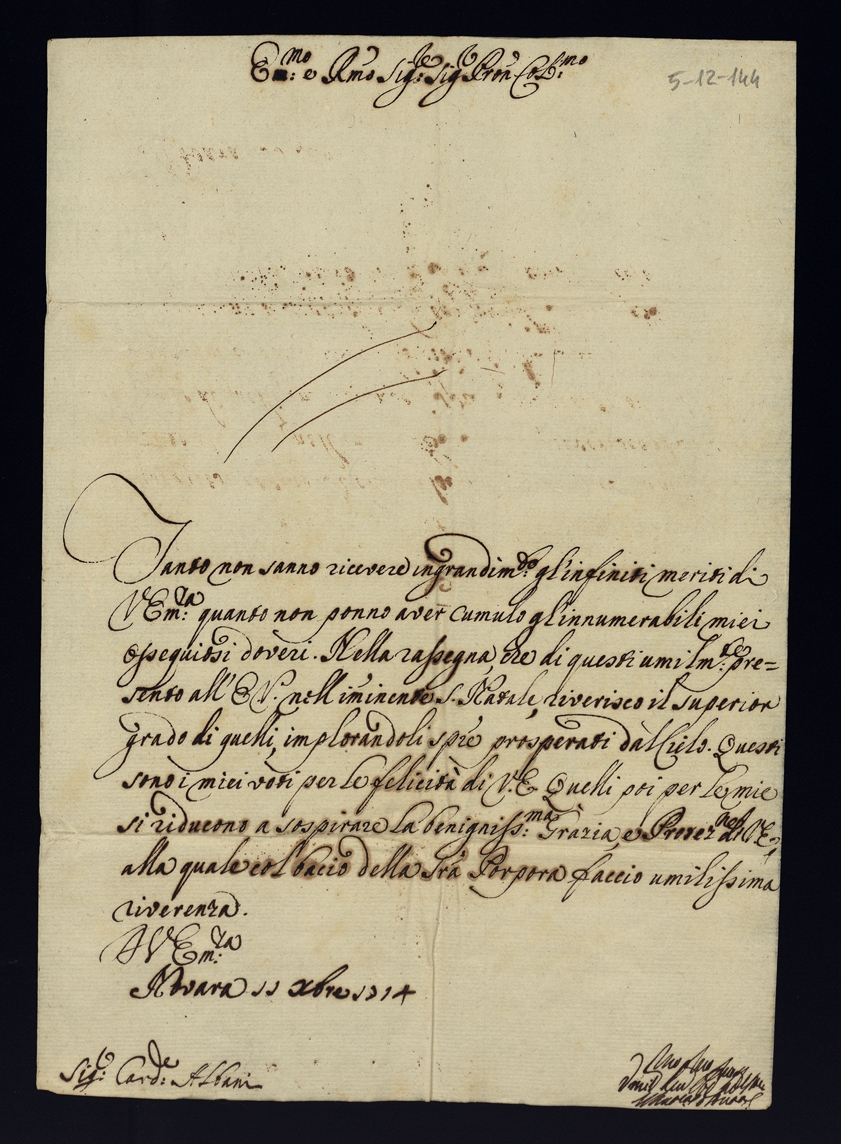 Em:mo e Rmo Sig:re Sig:re Pron Col:mo
5-12-144
Tanto non sanno ricevere ingrandim:to gl'infiniti meriti di
V Em:za quanto non ponno aver cumulo gl'innumerabili miei
osseguiosi doveri. Nella rassegna che di questi umilm:te pre=
sento all' E V. nell'iminente S. Natale, riverisco il superior
grado di quelli, implorandoli spre prosperati dàl Cielo. Questi
sono i miei voti per le felicità di V. E. Quelli poi per le mie
si riducono a sospirare la benigniss:ma Grazia, e Protez:ne di V E,
alla quale col bacio della Sra Porpora faccio umilissima
riverenza.
D V Em:za
Novara 11 Xbre 1714
Sig:r Card:le Albani